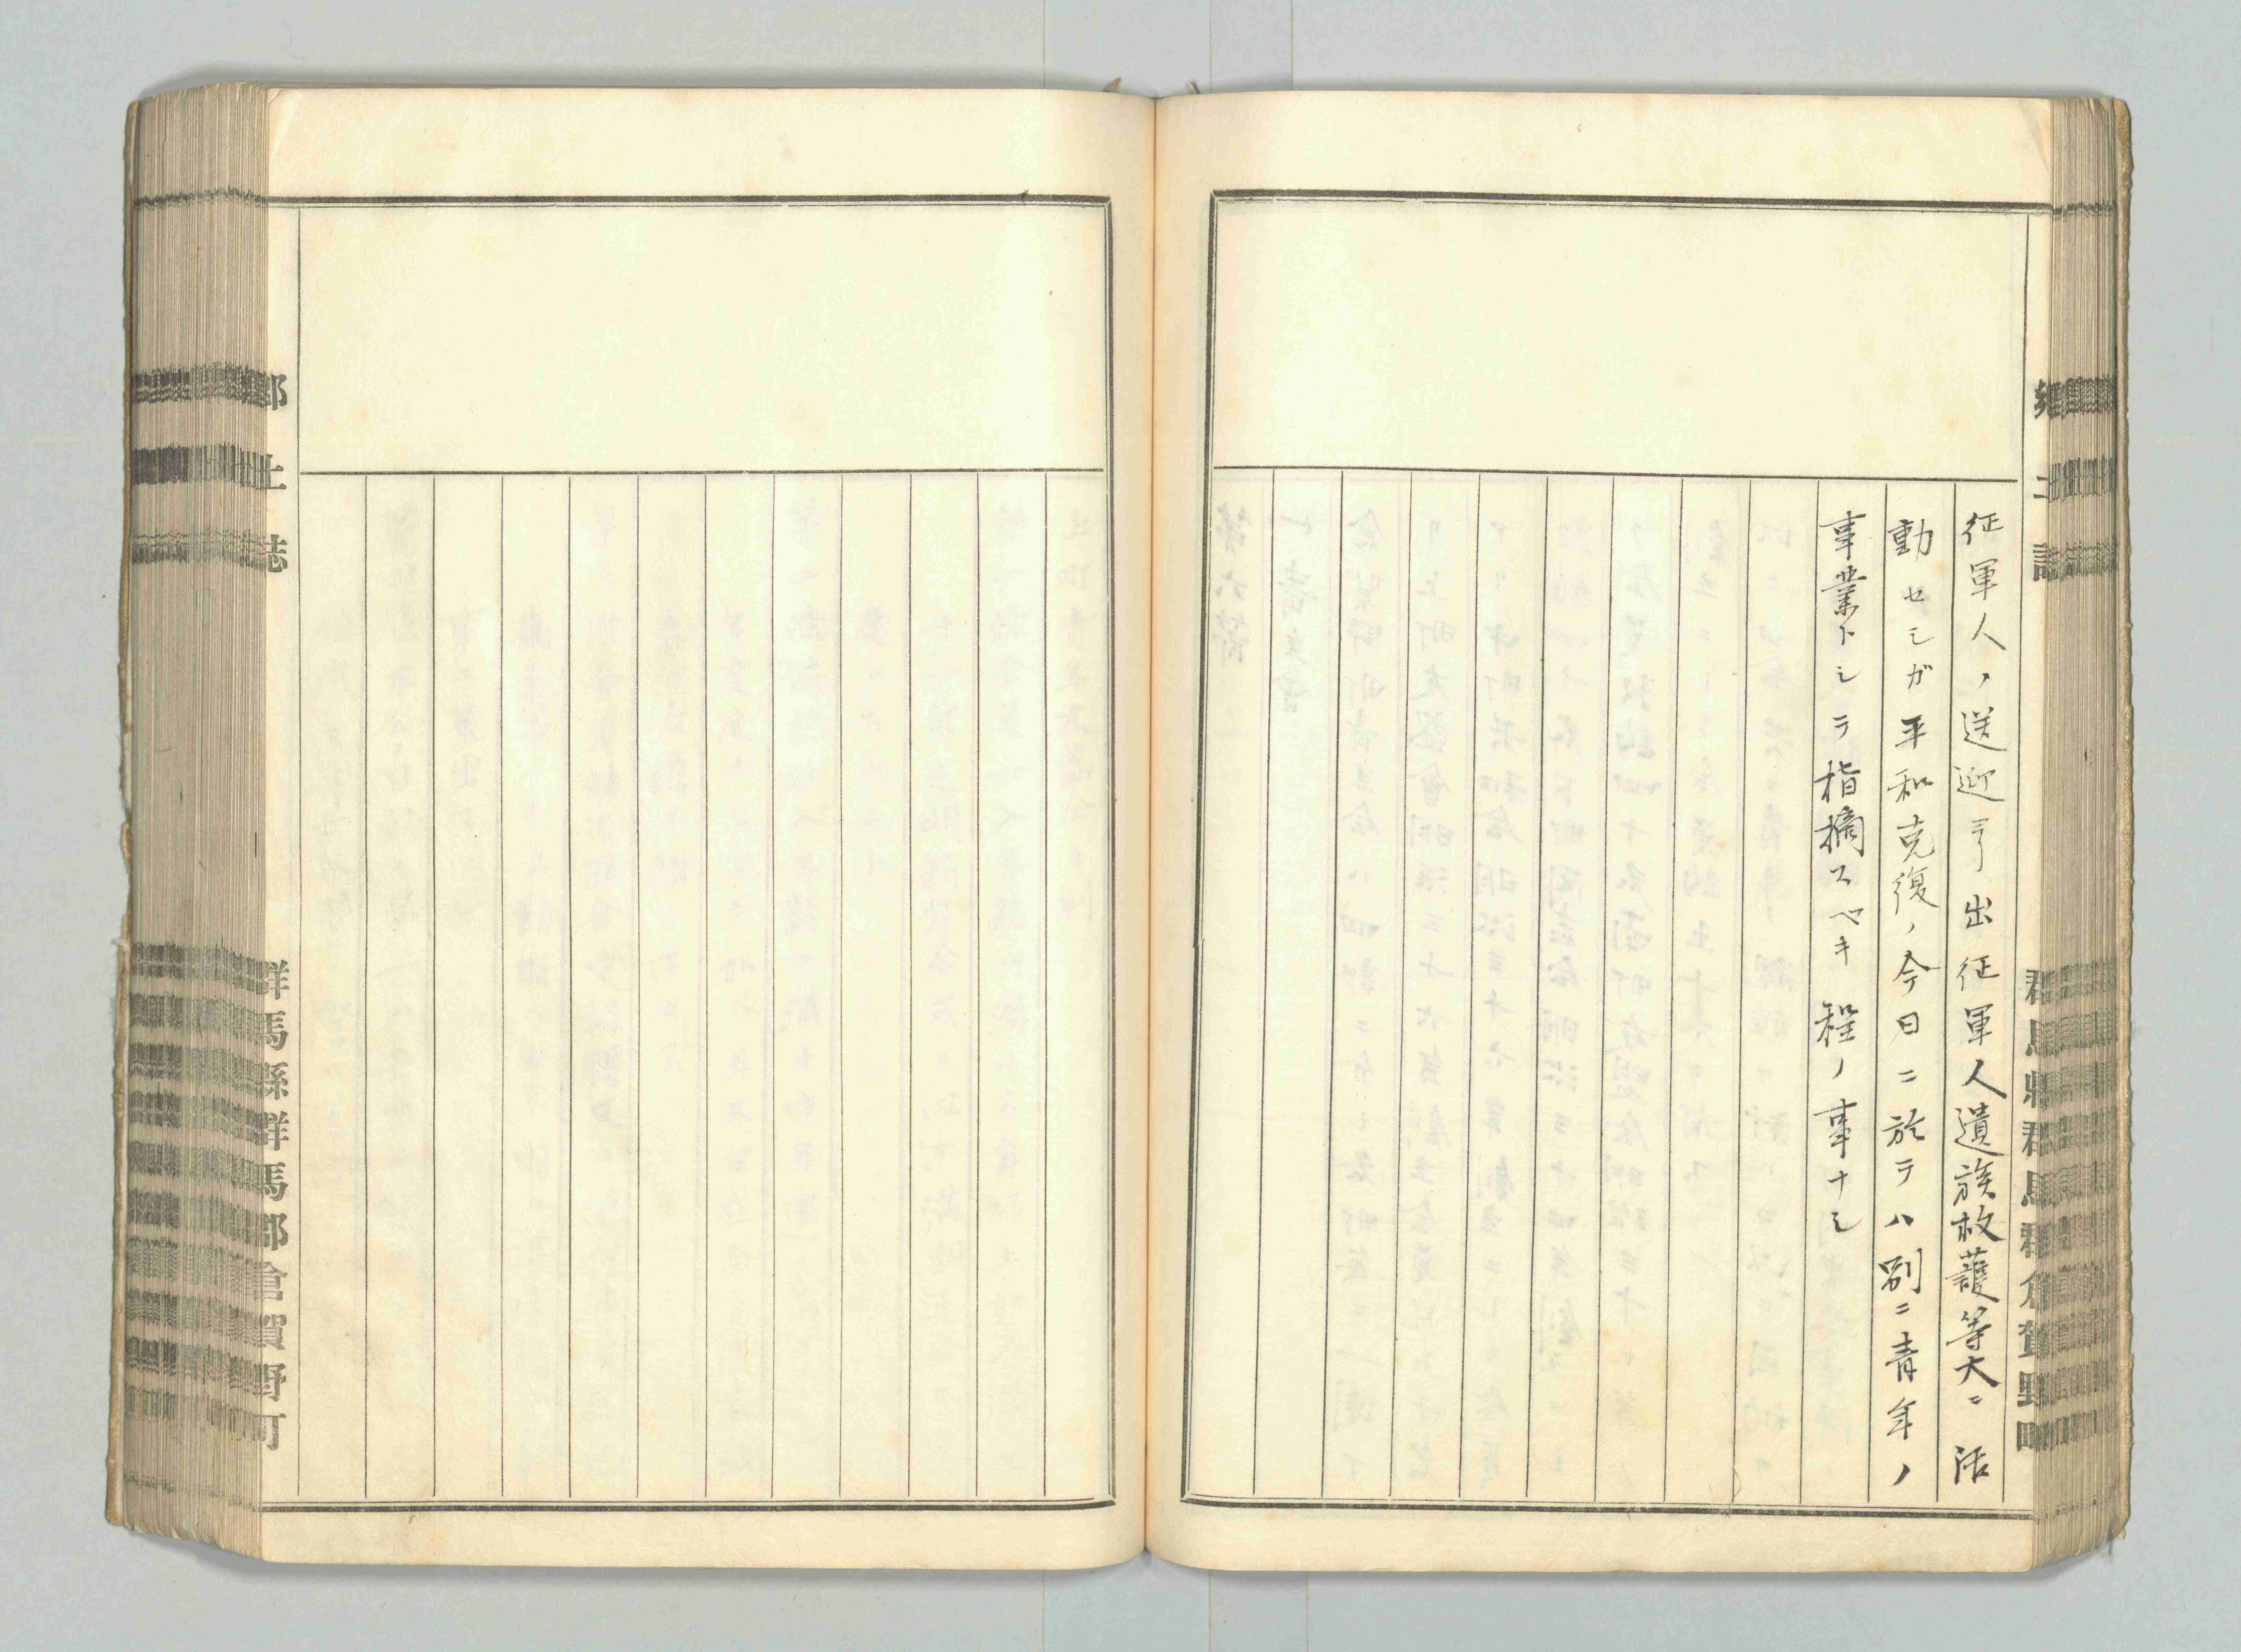 郷土誌
群馬縣群馬郡倉賀野町
征軍人ノ送迎ヲ出征軍人遺族救護等大ニ活
動セシガ平和克復ノ今日ニ於テハ別ニ青年ノ
事業トシテ指摘スベキ程ノ事ナシ
郷土誌
群馬縣群馬郡倉賀野町